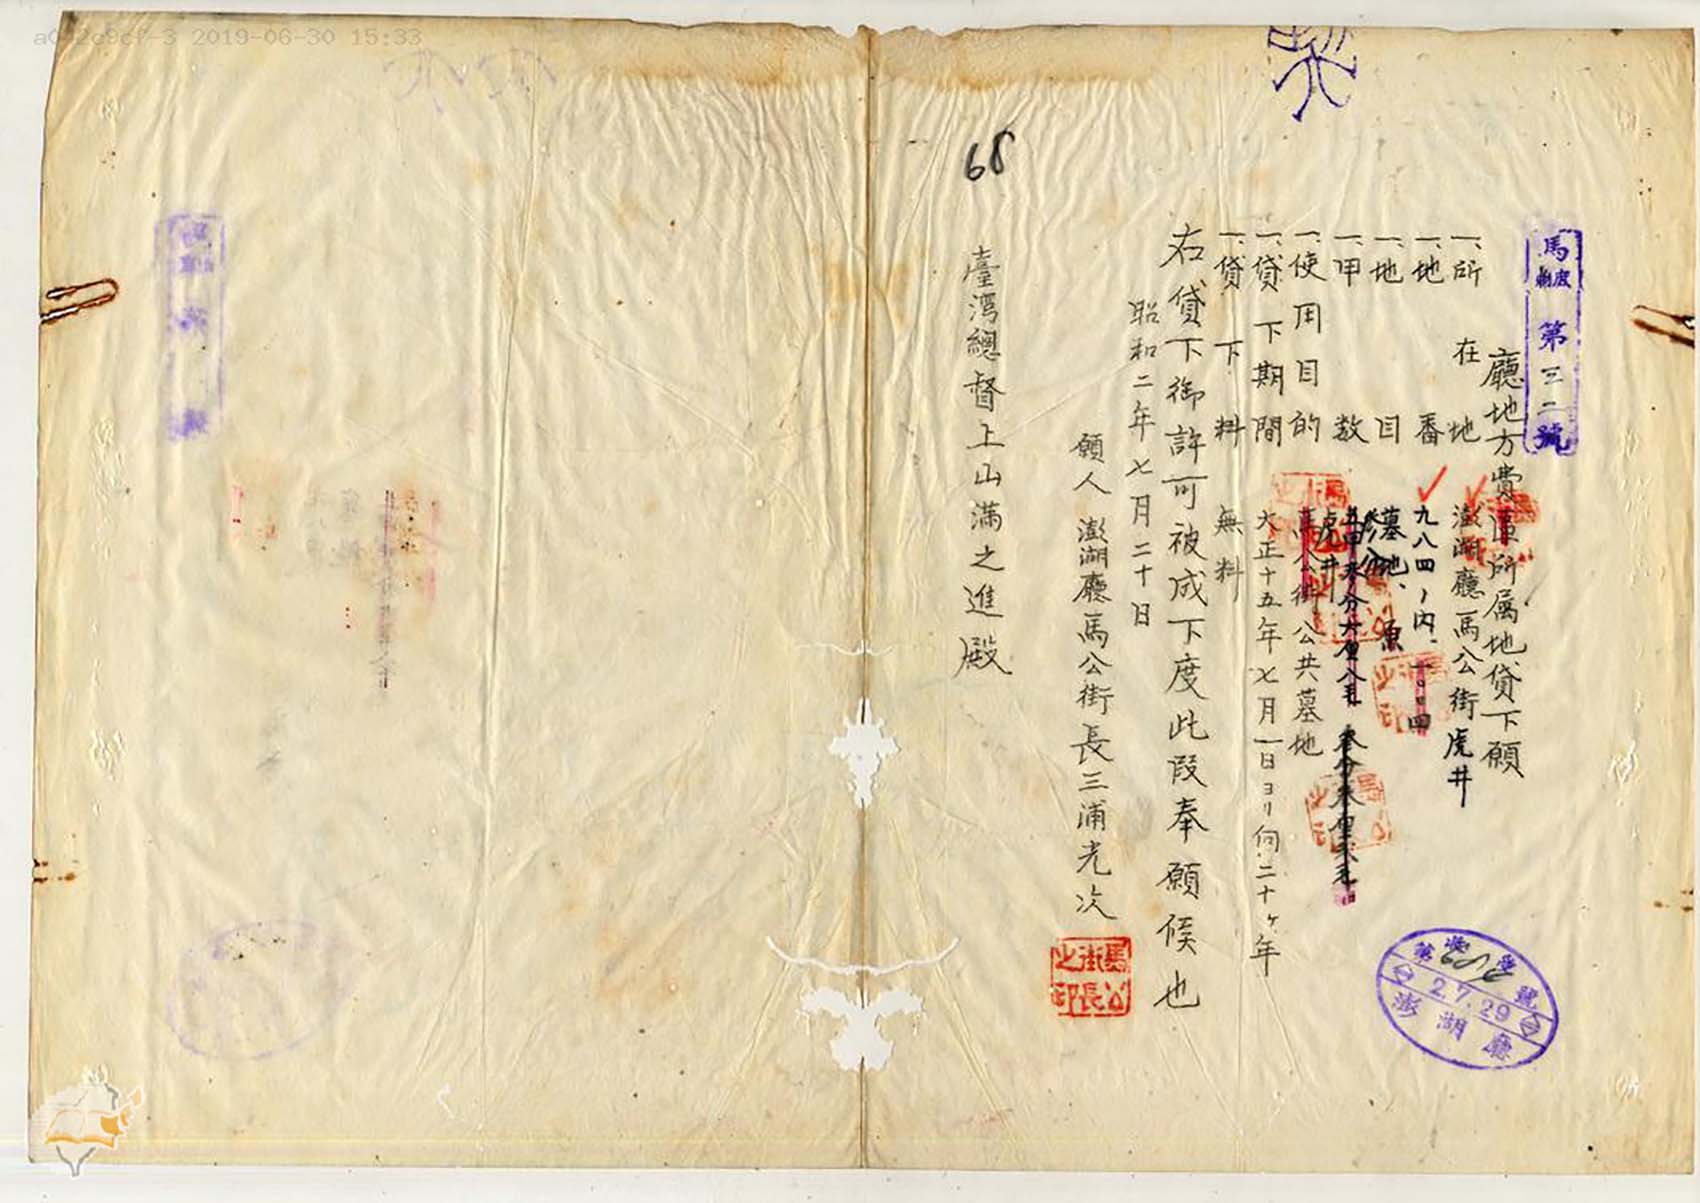 a0a2c9cf-3 2019-06-30 15:33
68
馬
第三二號
廳地方費所属地貸下願
一、所在地 澎湖廳馬公街虎井
一、地番 九八四ノ内、一〇〇四
一、地目 墓地、原
一、甲数
一、使用目的 虎井 公共墓地
一、貸下期間 大正十五年七月一日ヨリ向二十ヶ年
一、貸下料 無料
右貸下御許可被成下度此段奉願候也
昭和二年七月二十日
願人 澎湖廳馬公街長三浦光次
馬公街長之印
臺灣總督上山滿之進殿
第 號
2.7.29
澎湖廳